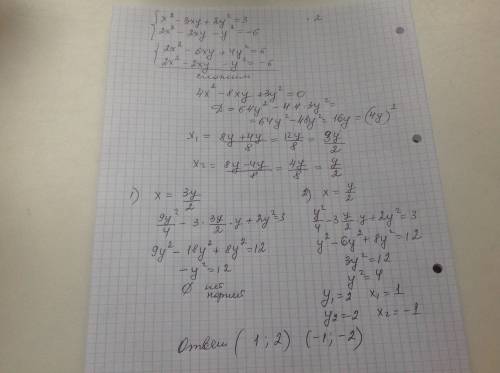 { x² - 3xy + 2y² = 3 · 2
2x² - 2xy - y² = -6
{ 2x² - 6xy + 4y² = 6
2x² - 2xy - y² = -6
сложим
4x² - 8xy + 3y² = 0
D = 64y² - 4·4·3y² =
= 64y² - 48y² = 16y = (4y)²
x₁ = (8y + 4y)/8 = 12y/8 = 9y/2
x₂ = (8y - 4y)/8 = 4y/8 = y/2
1) x = 3y/2
9y²/4 - 3 · 3y/2 · y + 2y² = 3
9y² - 18y² + 8y² = 12
-y² = 12
∅ нет
корней
2) x = y/2
y²/4 - 3 y/2 · y + 2y² = 3
y² - 6y² + 8y² = 12
3y² = 12
y² = 4
y₁ = 2 x₁ = 1
y₂ = -2 x₂ = -1
Ответ (1; 2) (-1; -2)